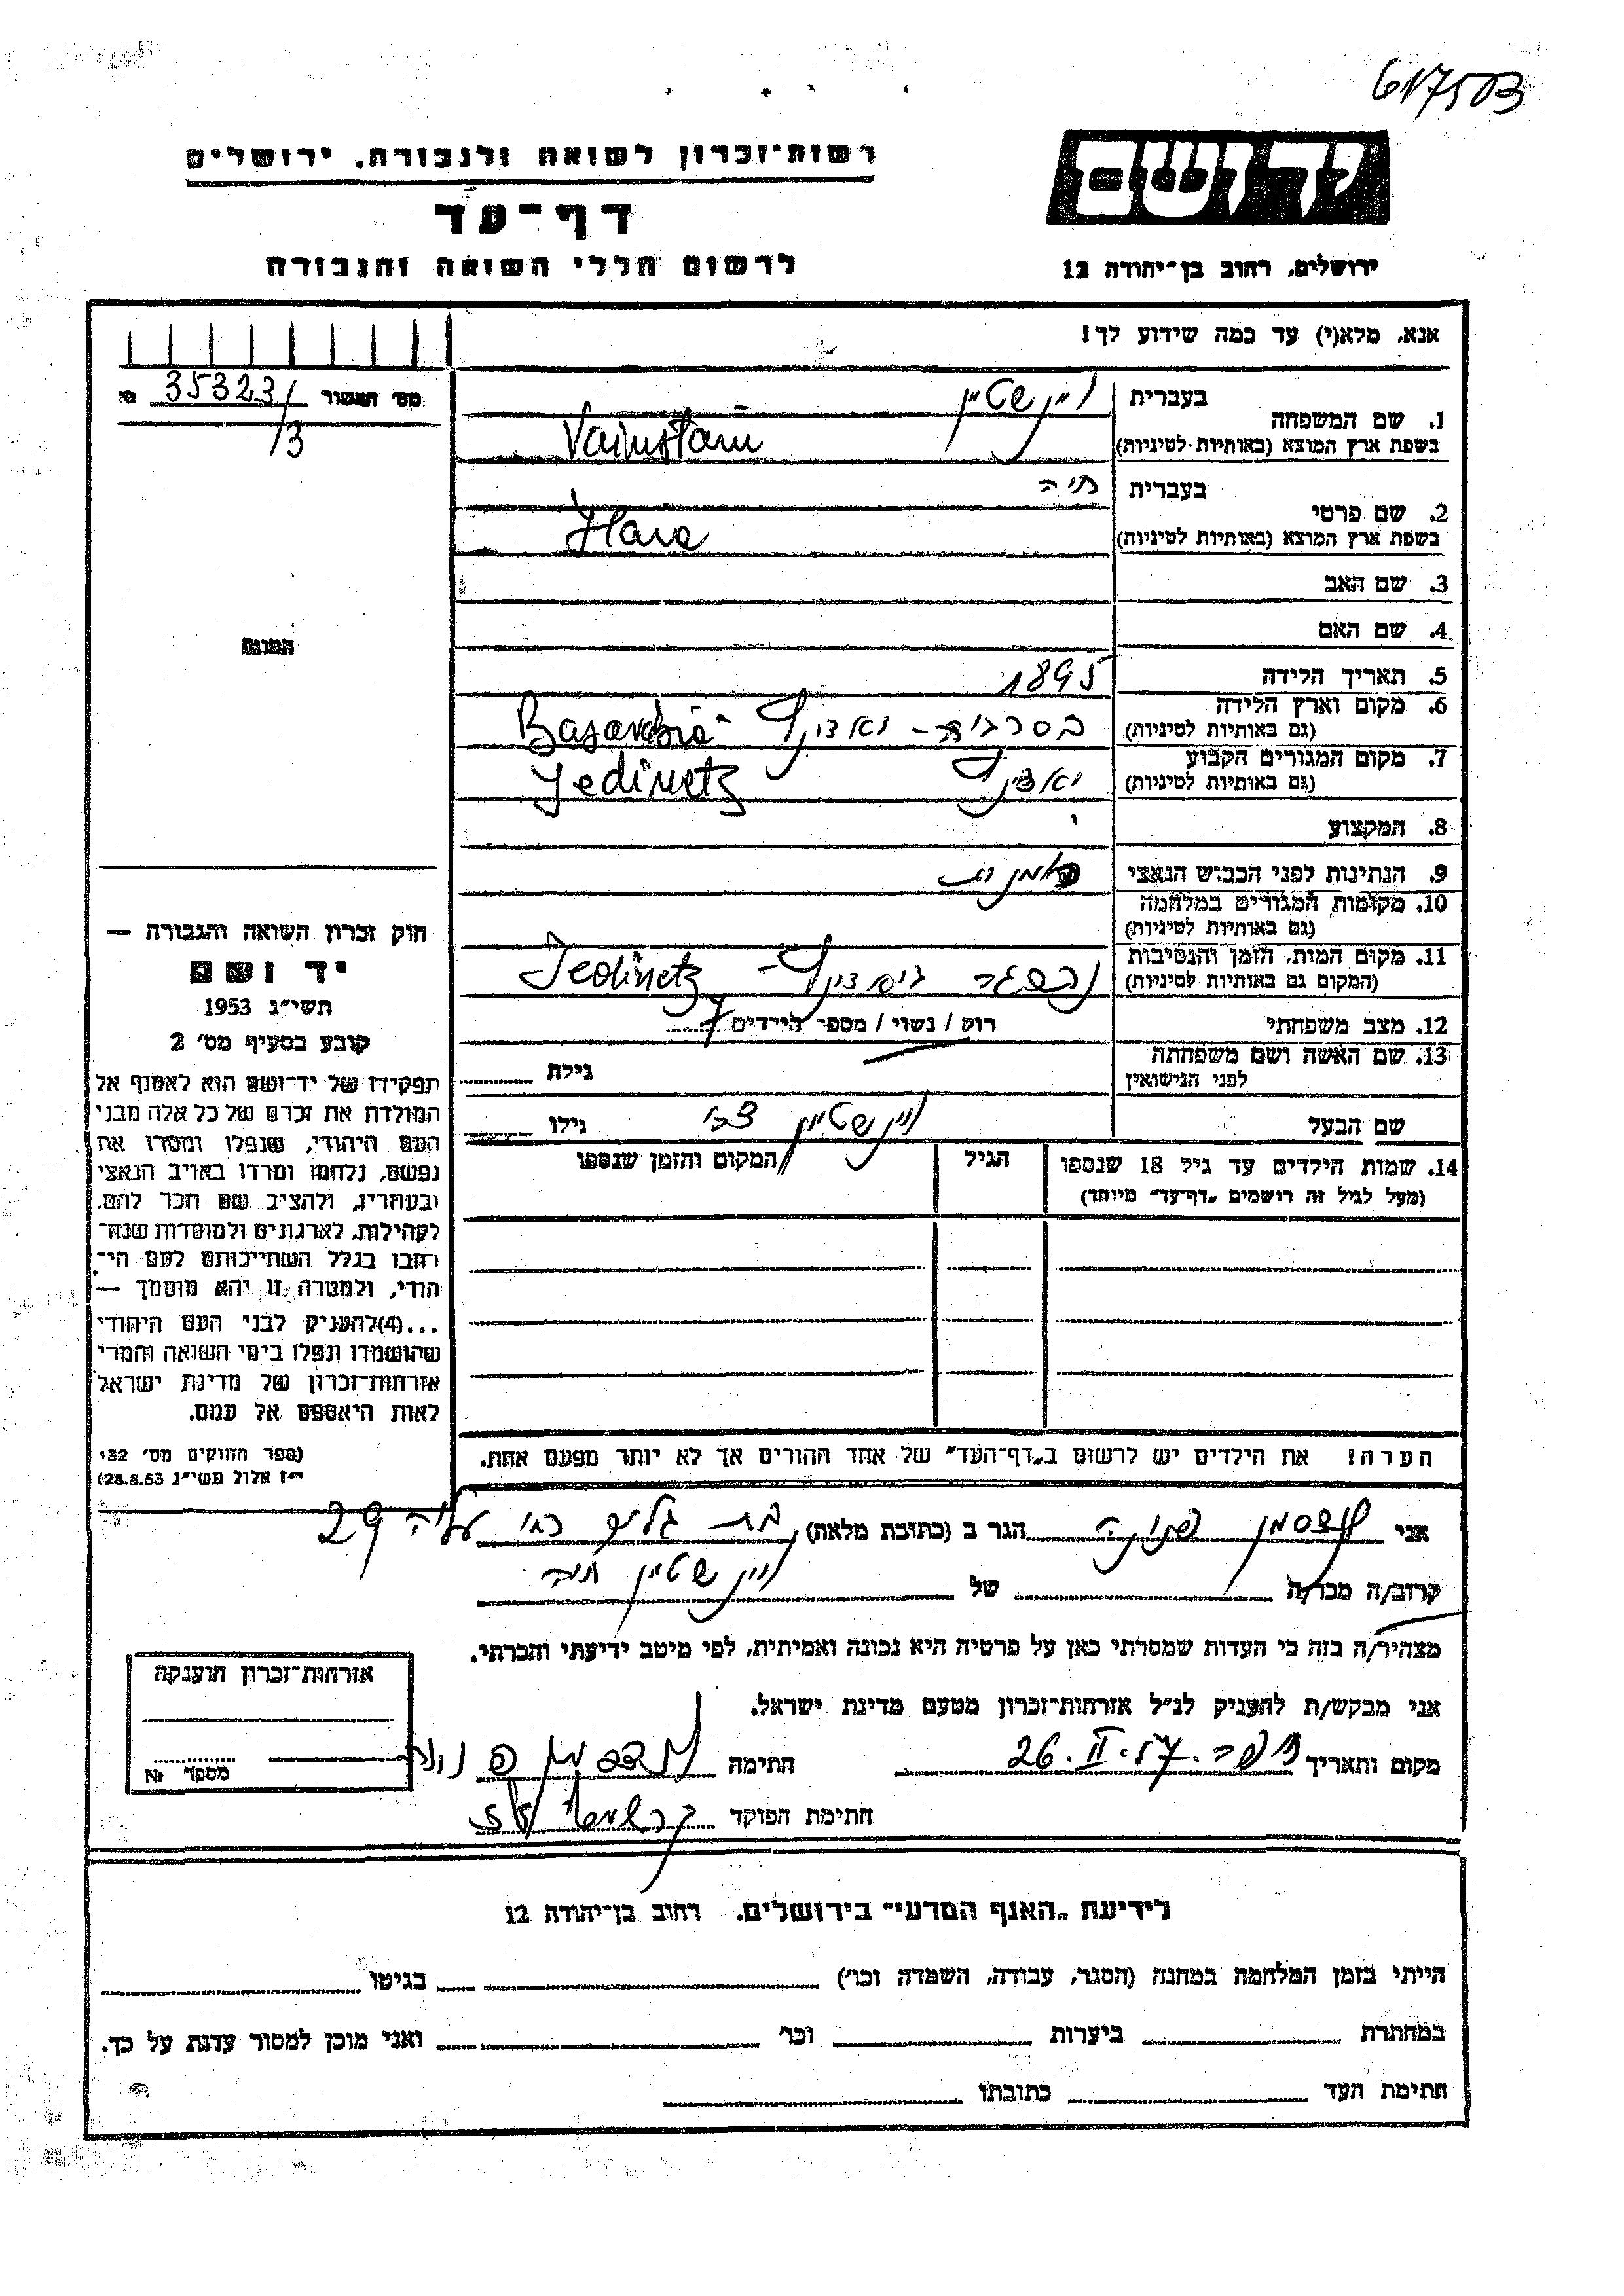 617503
רשות־זכרון לשואה ולגבורה, ירושלים
יד ושם
דף־עד
לרשום חללי השואה והגבורה
ירושלים, רחוב בן־יהודה 12
אנא, מלא(י) עד כמה שידוע לך!
מס׳ 35323/
/3
1. שם המשפחה
בעברית ויינשטיין
בשפת ארץ המוצא (באותיות־לטיניות) Vainstain
2. שם פרטי
בעברית חיה
בשפת ארץ המוצא (באותיות לטיניות) Haia
3. שם האב
4. שם האם
5. תאריך הלידה 1895
6. מקום וארץ הלידה
(גם באותיות לטיניות) Basarabia
7. מקום המגורים הקבוע
(גם באותיות לטיניות) Jedinetz
8. המקצוע
9. הנתינות לפני הכבוש הנאצי
10. מקומות המגורים במלחמה
(גם באותיות לטיניות)
11. מקום המות, הזמן והנסיבות
(המקום גם באותיות לטיניות) Jedinetz
12. מצב משפחתי רוק / נשוי / מספר הילדים 7
13. שם האשה ושם משפחתה
לפני הנישואין גילה
שם הבעל ויינשטיין צבי גילו
14. שמות הילדים עד גיל 18 שנספו
(מעל לגיל זה רושמים „דף־עד״ מיוחד)
הגיל
המקום והזמן שנספו
הערה! את הילדים יש לרשום ב„דף־העד״ של אחד ההורים אך לא יותר מפעם אחת.
התמונה
חוק זכרון השואה והגבורה —
יד ושם
תשי״ג 1953
קובע בסעיף מס׳ 2
תפקידו של יד־ושם הוא לאסוף אל
המולדת את זכרם של כל אלה מבני
העם היהודי, שנפלו ומסרו את
נפשם, נלחמו ומרדו באויב הנאצי
ובעוזריו, ולהציב שם וזכר להם,
לקהילות, לארגונים ולמוסדות שנח־
רבו בגלל השתייכותם לעם הי־
הודי, ולמטרה זו יהא מוסמך —
...(4)להעניק לבני העם היהודי
שהושמדו ונפלו בימי השואה והמרי
אזרחות־זכרון של מדינת ישראל
לאות היאספם אל עמם.
(ספר החוקים מס׳ 132
י״ז אלול תשי״ג 28.8.53)
אני הגר ב (כתובת מלאה) בת גלים עליה 29
קרוב/ה מכר/ה של ויינשטיין חיה
מצהיר/ה בזה כי העדות שמסרתי כאן על פרטיה היא נכונה ואמיתית, לפי מיטב ידיעתי והכרתי.
אני מבקש/ת להעניק לנ״ל אזרחות־זכרון מטעם מדינת ישראל.
מקום ותאריך חיפה 26.II.57 חתימה
חתימת הפוקד
אזרחות־זכרון הוענקה
מספר №
לידיעת „האגף המדעי״ בירושלים, רחוב בן־יהודה 12
הייתי בזמן המלחמה במחנה (הסגר, עבודה, השמדה וכו׳) בגיטו
במחתרת ביערות וכו׳ ואני מוכן למסור עדות על כך.
חתימת העד כתובתו